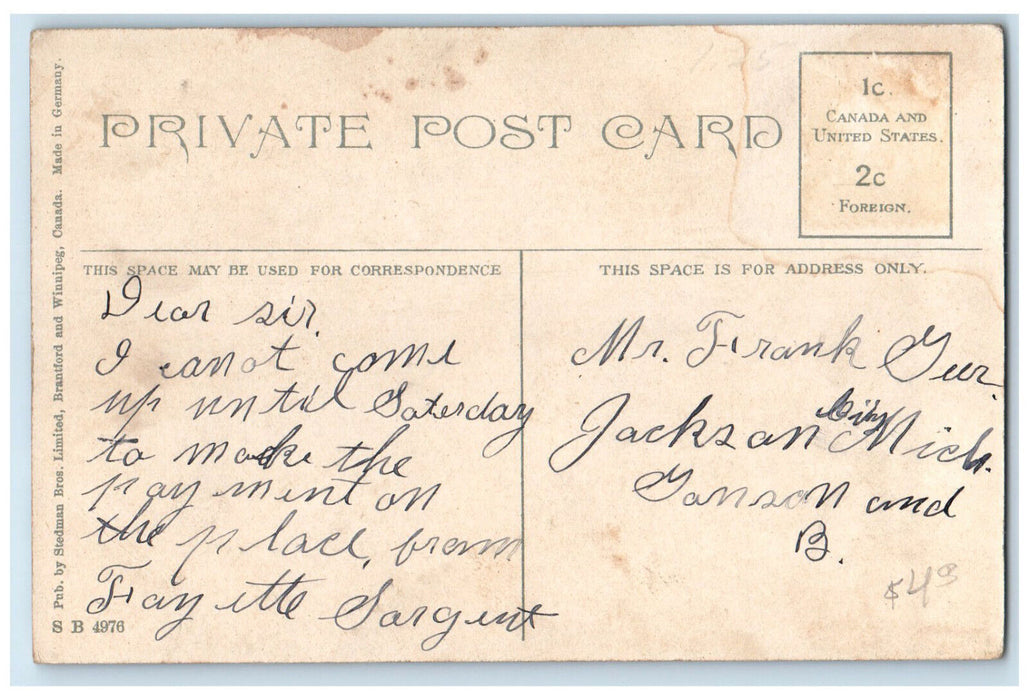 PRIVATE POST CARD
1c.
CANADA AND
UNITED STATES.
2c
FOREIGN.
Pub. by Stedman Bros. Limited, Brantford and Winnipeg, Canada. Made in Germany.
THIS SPACE MAY BE USED FOR CORRESPONDENCE
Dear sir.
I canot come
up until Saterday
to make the
payment on
the place, from
Fayette Sargent
S B 4976
THIS SPACE IS FOR ADDRESS ONLY.
Mr. Frank
Jackson City Mich.
Ganson and
B.